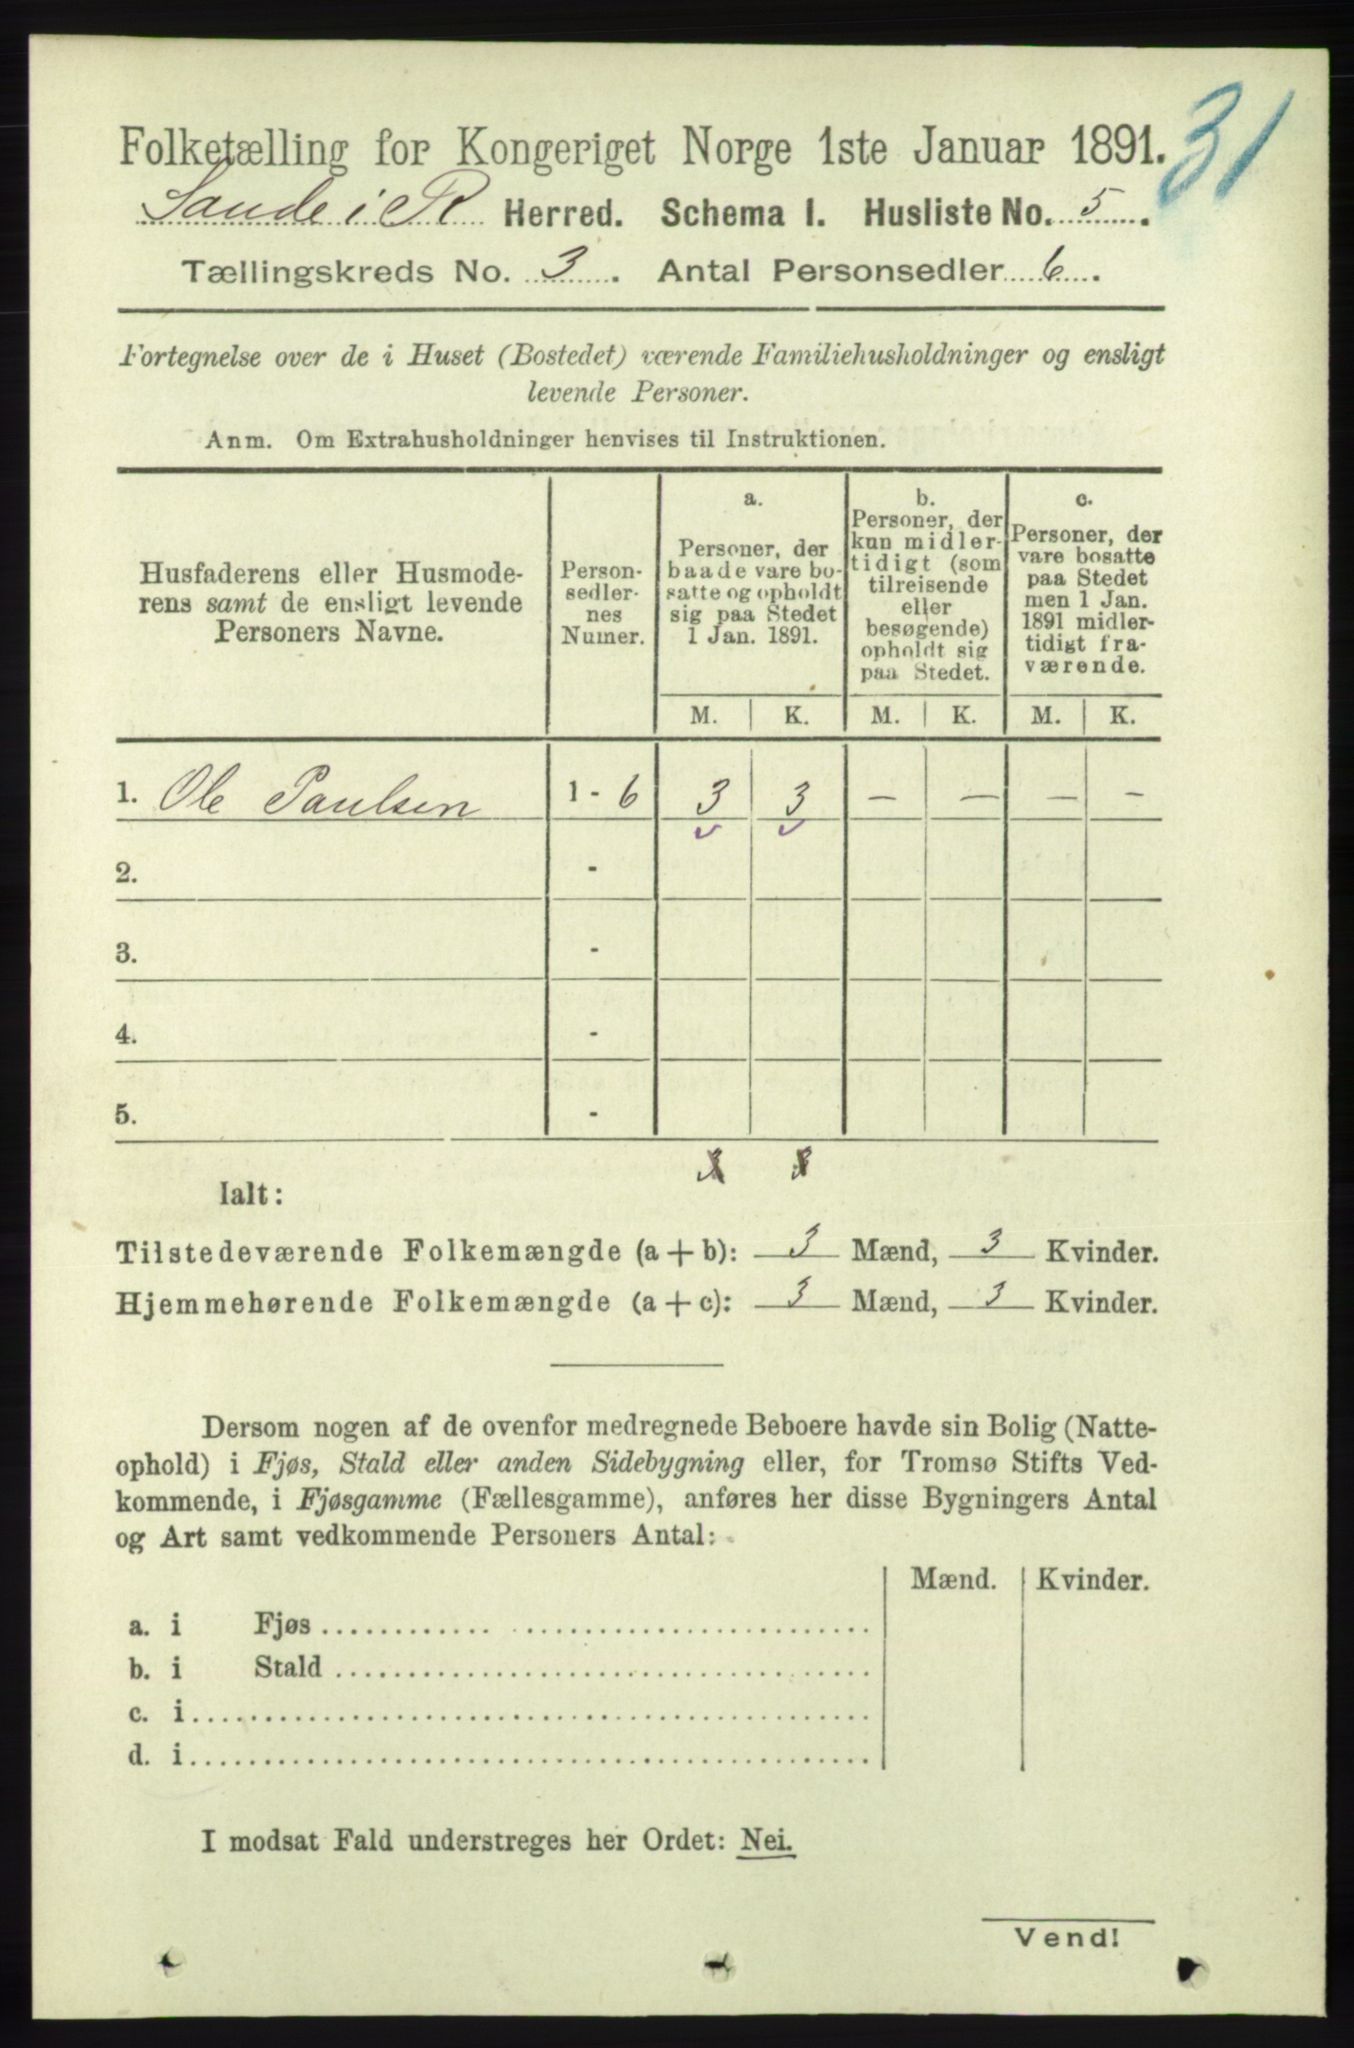 31
Folketælling for Kongeriget Norge 1ste Januar 1891.
Sande i R Herred. Schema I. Husliste No. 5.
Tællingskreds No. 3. Antal Personsedler 6.
Fortegnelse over de i Huset (Bostedet) værende Familiehusholdninger og ensligt
levende Personer.
Anm. Om Extrahusholdninger henvises til Instruktionen.
Husfaderens eller Husmode-
rens samt de ensligt levende
Personers Navne.
Person-
sedler-
nes
Numer.
a.
Personer, der
baade vare bo-
satte og opholdt
sig paa Stedet
1 Jan. 1891.
b.
Personer, der
kun midler-
tidigt (som
tilreisende
eller
besøgende)
opholdt sig
paa Stedet.
c.
Personer, der
vare bosatte
paa Stedet
men 1 Jan.
1891 midler-
tidigt fra-
værende.
M. K. M. K. M. K.
1. Ole Paulsen 1 - 6 3 3 — — — —
2. -
3. -
4. -
5. -
Ialt:
Tilstedeværende Folkemængde (a + b): 3 Mænd, 3 Kvinder.
Hjemmehørende Folkemængde (a + c): 3 Mænd, 3 Kvinder.
Dersom nogen af de ovenfor medregnede Beboere havde sin Bolig (Natte-
ophold) i Fjøs, Stald eller anden Sidebygning eller, for Tromsø Stifts Ved-
kommende, i Fjøsgamme (Fællesgamme), anføres her disse Bygningers Antal
og Art samt vedkommende Personers Antal:
Mænd. Kvinder.
a. i Fjøs
b. i Stald
c. i
d. i
I modsat Fald understreges her Ordet: Nei.
Vend!